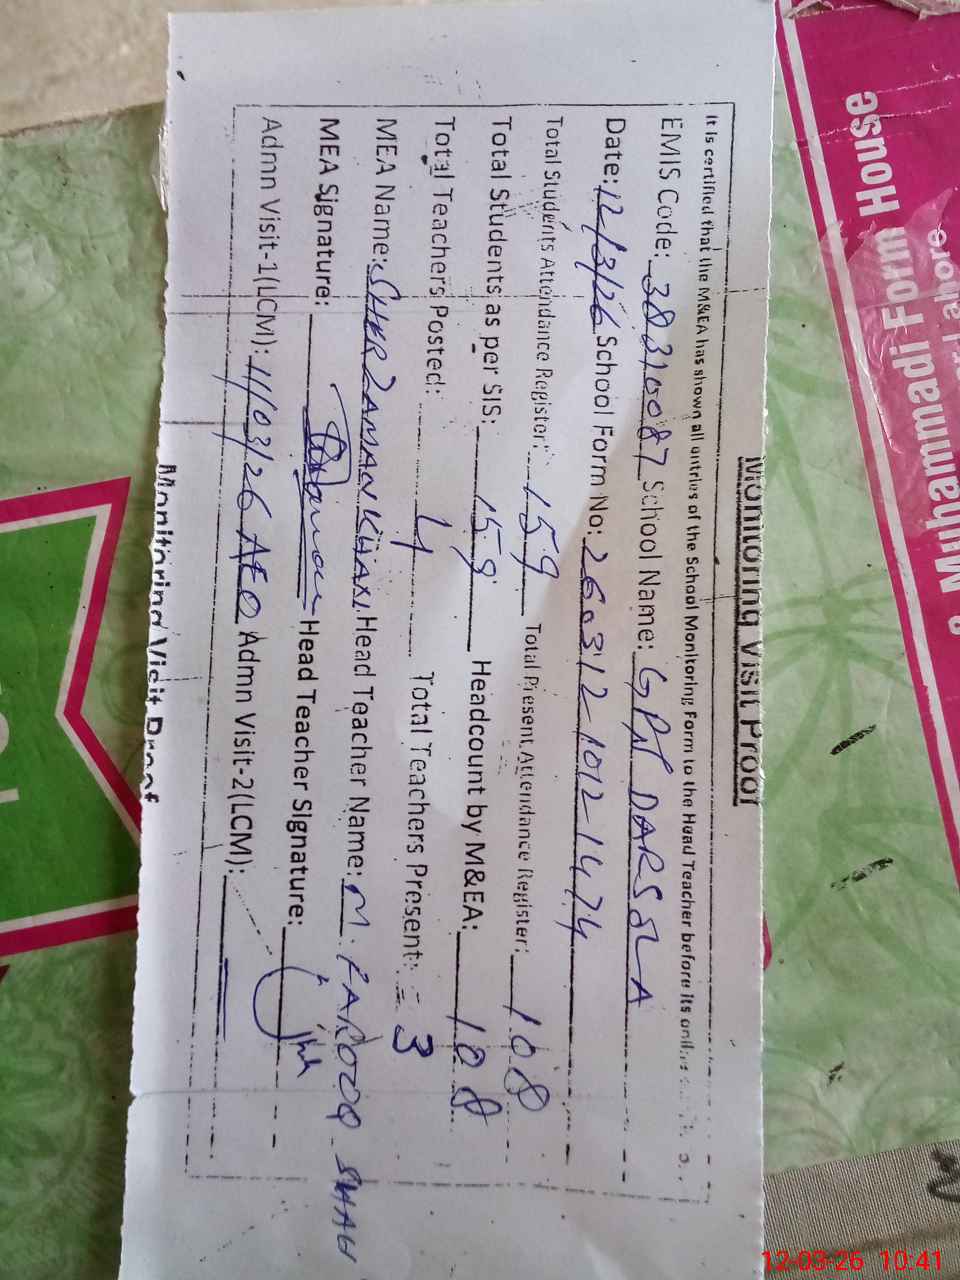 Monitoring Visit Proof
It is certified that the M&EA has shown all entries of the School Monitoring Form to the Head Teacher before its
EMIS Code: 38310087 School Name: GPS DARSOLA
Date: 12/3/26 School Form No: 260312-1012-1474
Total Students Attendance Register: 159 Total Present Attendance Register: 108
Total Students as per SIS: 159 Headcount by M&EA: 108
Total Teachers Posted: 4 Total Teachers Present: 3
MEA Name: SHER ZAMAN KHAN Head Teacher Name: M. FAROOQ SHAH
MEA Signature: Head Teacher Signature:
Admn Visit-1(LCM): 11/03/26 AEO Admn Visit-2(LCM):
Monitoring Visit Proof
Muhammadi Form House
Lahore
12-03-26 10:41